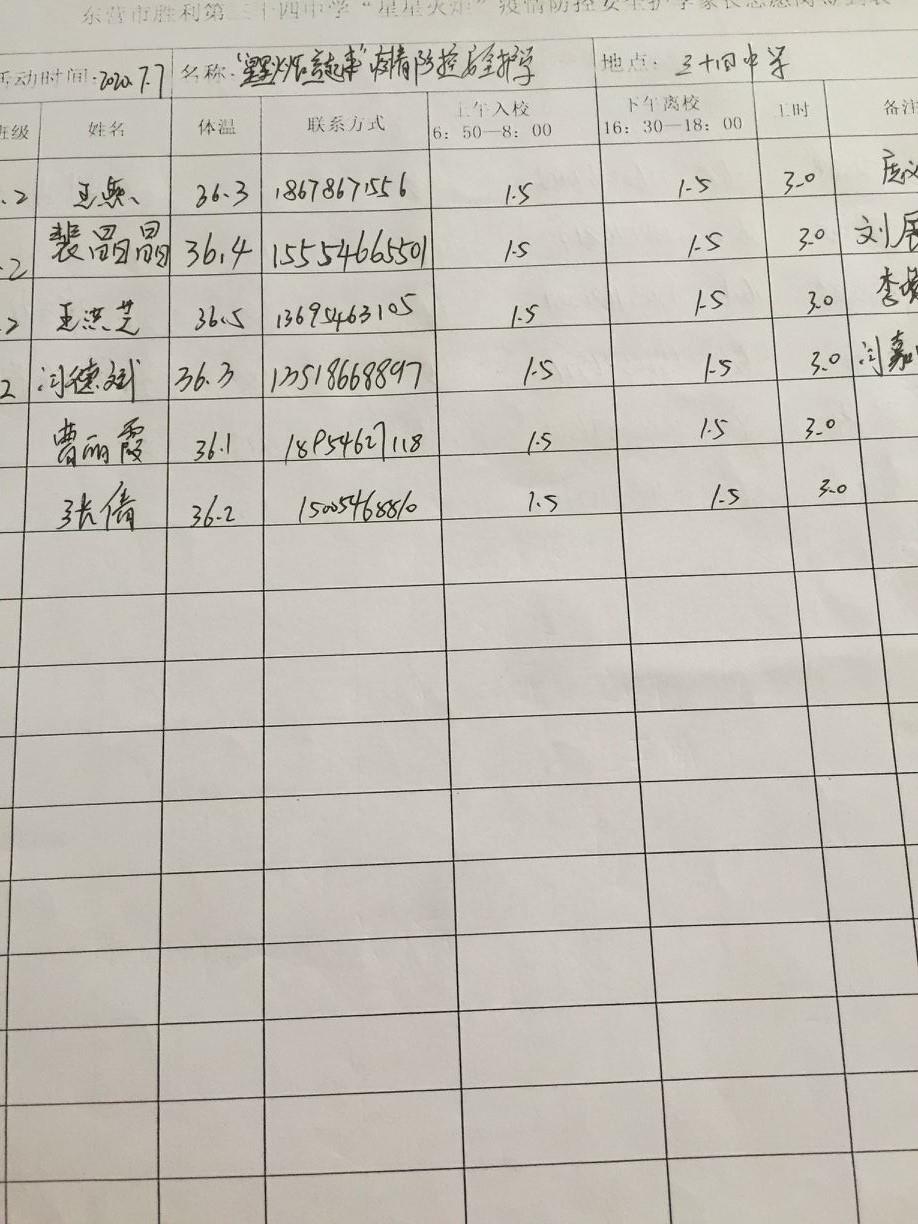 东营市胜利第三十四中学“星星火炬”疫情防控安全护学家长志愿岗
活动时间:2020.7.7 名称: 疫情防控安全护学 地点: 三十四中学
班级 姓名 体温 联系方式 上午入校 6:50—8:00 下午离校 16:30—18:00 工时 备注
.2 36.3 18678671556 1.5 1.5 3.0
.2 裴晶晶 36.4 15554665501 1.5 1.5 3.0 刘
.2 王洪芝 36.5 13695463105 1.5 1.5 3.0 李
2 闫德斌 36.3 13518668897 1.5 1.5 3.0 闫嘉
曹丽霞 36.1 18954627118 1.5 1.5 3.0
张倩 36.2 15005468810 1.5 1.5 3.0